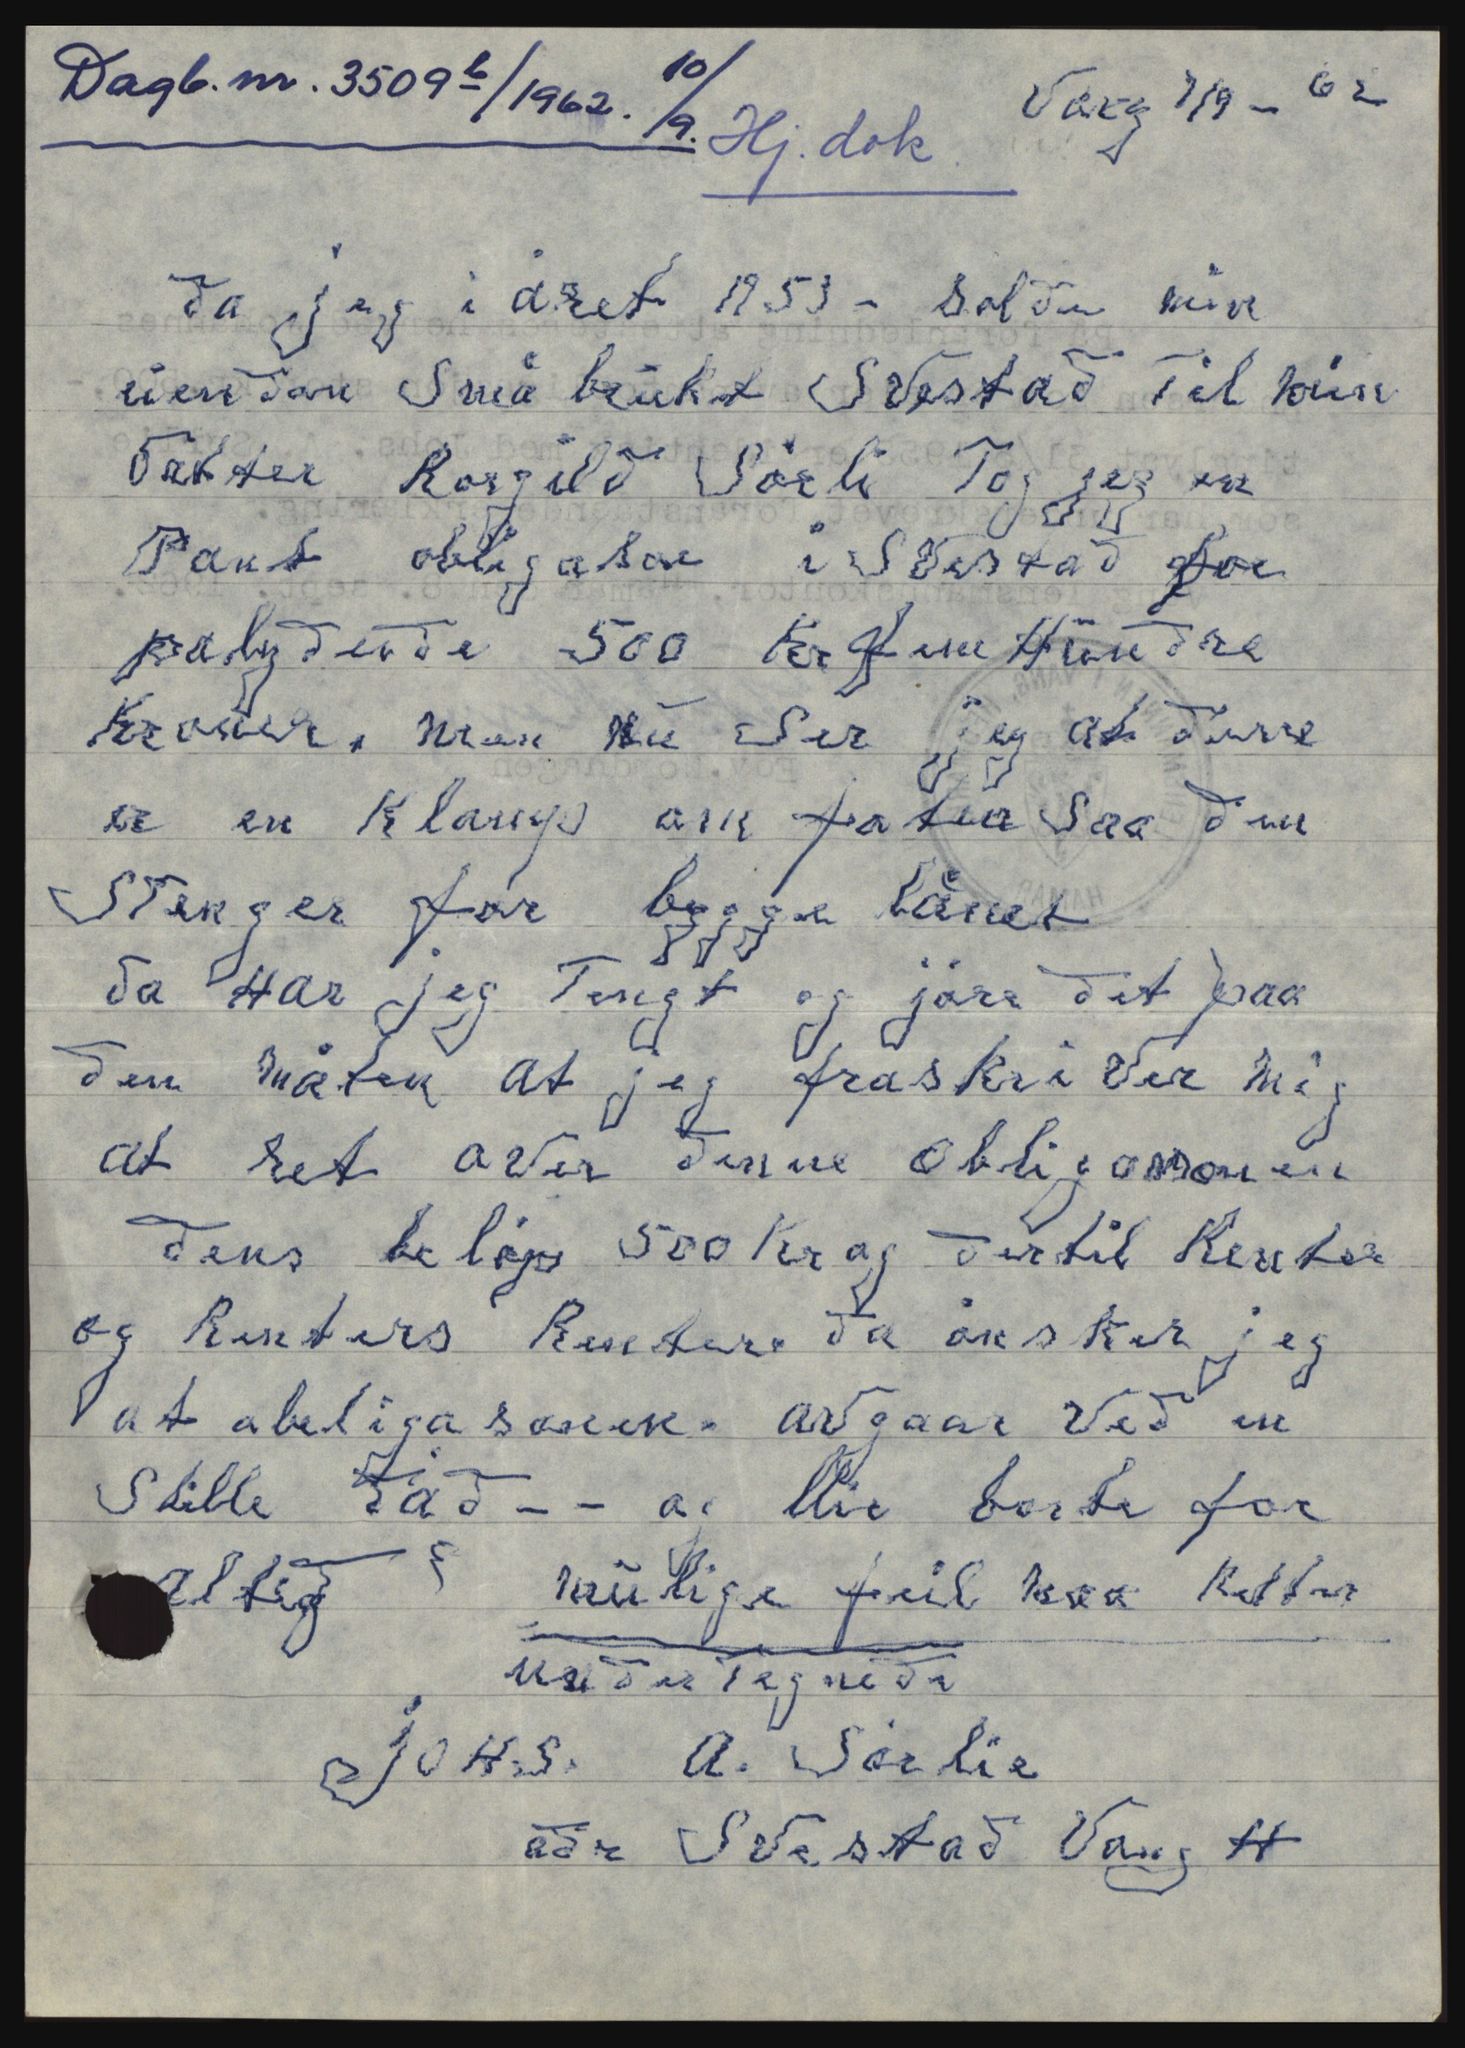 Dagb. nr. 3509 b/1962. 10/9.
Hj. dok.
Vang 7/9 - 62
Da jeg i året 1953 - solde min
eiendom Små bruket Svestad Til min
Datter Ragnild Sörli Tog jeg en
Pant obligason i Svestad for
palydende 500 Kr fem Hundre
Kroner. men nu ser jeg at denne
er en Klamp om foten saa den
Stenger for bygge lånet
Da Har jeg Tengt og jöre det paa
den måten at jeg fraskriver mig
al ret over denne obligasonen
dens belöp 500 Kr og dertil Renter
og Renters Renter. Da önsker jeg
at obeligasonen. avgaar ved en
Stille död - - og blir borte for
altid mulige feil maa rettes
undertegnede
joHs. A. Sörlie
adr Svestad Vang H